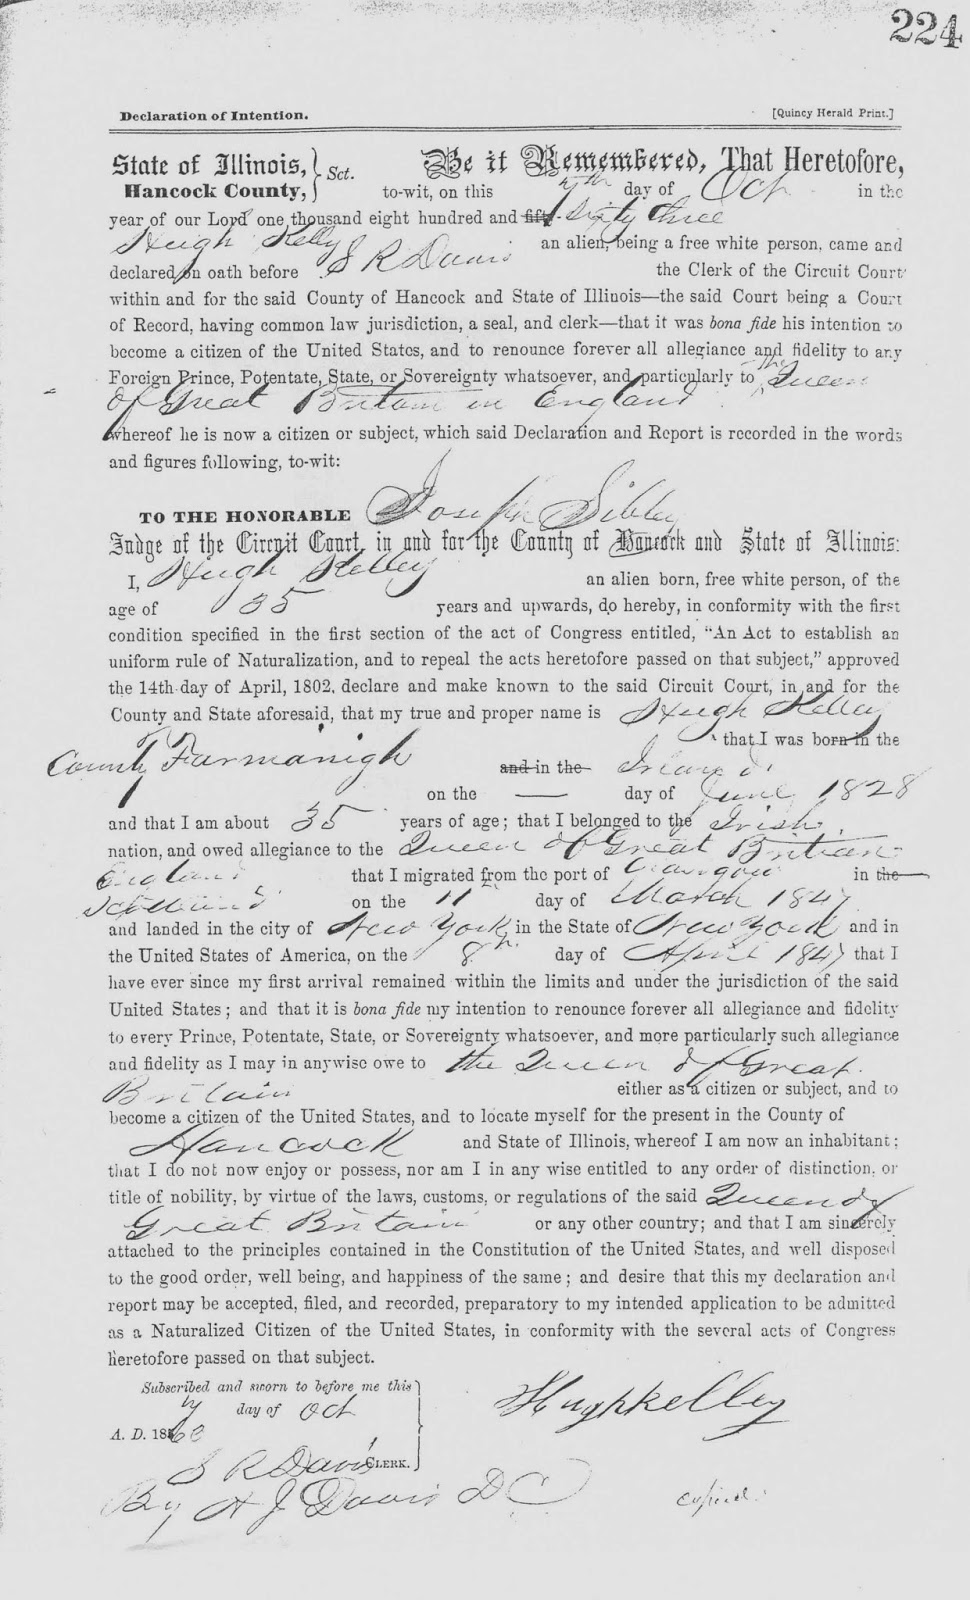 224
Declaration of Intention.
[Quincy Herald Print.]
State of Illinois, } Sct. Be it Remembered, That Heretofore,
Hancock County, to-wit, on this 7th day of Oct in the
year of our Lord one thousand eight hundred and fifty- Sixty three
Hugh Kelly an alien, being a free white person, came and
declared on oath before S R Davis the Clerk of the Circuit Court
within and for the said County of Hancock and State of Illinois—the said Court being a Court
of Record, having common law jurisdiction, a seal, and clerk—that it was bona fide his intention to
become a citizen of the United States, and to renounce forever all allegiance and fidelity to any
Foreign Prince, Potentate, State, or Sovereignty whatsoever, and particularly to the Queen
of Great Britain in England
whereof he is now a citizen or subject, which said Declaration and Report is recorded in the words
and figures following, to-wit:
TO THE HONORABLE Joseph Sibley
Judge of the Circuit Court, in and for the County of Hancock and State of Illinois:
I, Hugh Kelley an alien born, free white person, of the
age of 35 years and upwards, do hereby, in conformity with the first
condition specified in the first section of the act of Congress entitled, “An Act to establish an
uniform rule of Naturalization, and to repeal the acts heretofore passed on that subject,” approved
the 14th day of April, 1802, declare and make known to the said Circuit Court, in and for the
County and State aforesaid, that my true and proper name is Hugh Kelley
that I was born in the
County Farmanigh and in the Ireland
on the — day of June 1828
and that I am about 35 years of age; that I belonged to the Irish
nation, and owed allegiance to the Queen of Great Britian
England that I migrated from the port of Glasgow in the
Scotland on the 11 day of March 1847
and landed in the city of New York in the State of New York and in
the United States of America, on the 8th day of April 1847 that I
have ever since my first arrival remained within the limits and under the jurisdiction of the said
United States; and that it is bona fide my intention to renounce forever all allegiance and fidelity
to every Prince, Potentate, State, or Sovereignty whatsoever, and more particularly such allegiance
and fidelity as I may in anywise owe to the Queen of Great
Britain either as a citizen or subject, and to
become a citizen of the United States, and to locate myself for the present in the County of
Hancock and State of Illinois, whereof I am now an inhabitant;
that I do not now enjoy or possess, nor am I in any wise entitled to any order of distinction, or
title of nobility, by virtue of the laws, customs, or regulations of the said Queen of
Great Britain or any other country; and that I am sincerely
attached to the principles contained in the Constitution of the United States, and well disposed
to the good order, well being, and happiness of the same; and desire that this my declaration and
report may be accepted, filed, and recorded, preparatory to my intended application to be admitted
as a Naturalized Citizen of the United States, in conformity with the several acts of Congress
heretofore passed on that subject.
Subscribed and sworn to before me this
7 day of Oct
Hugh Kelley
A. D. 1863
S R Davis CLERK.
By H J Davis D C
copied.